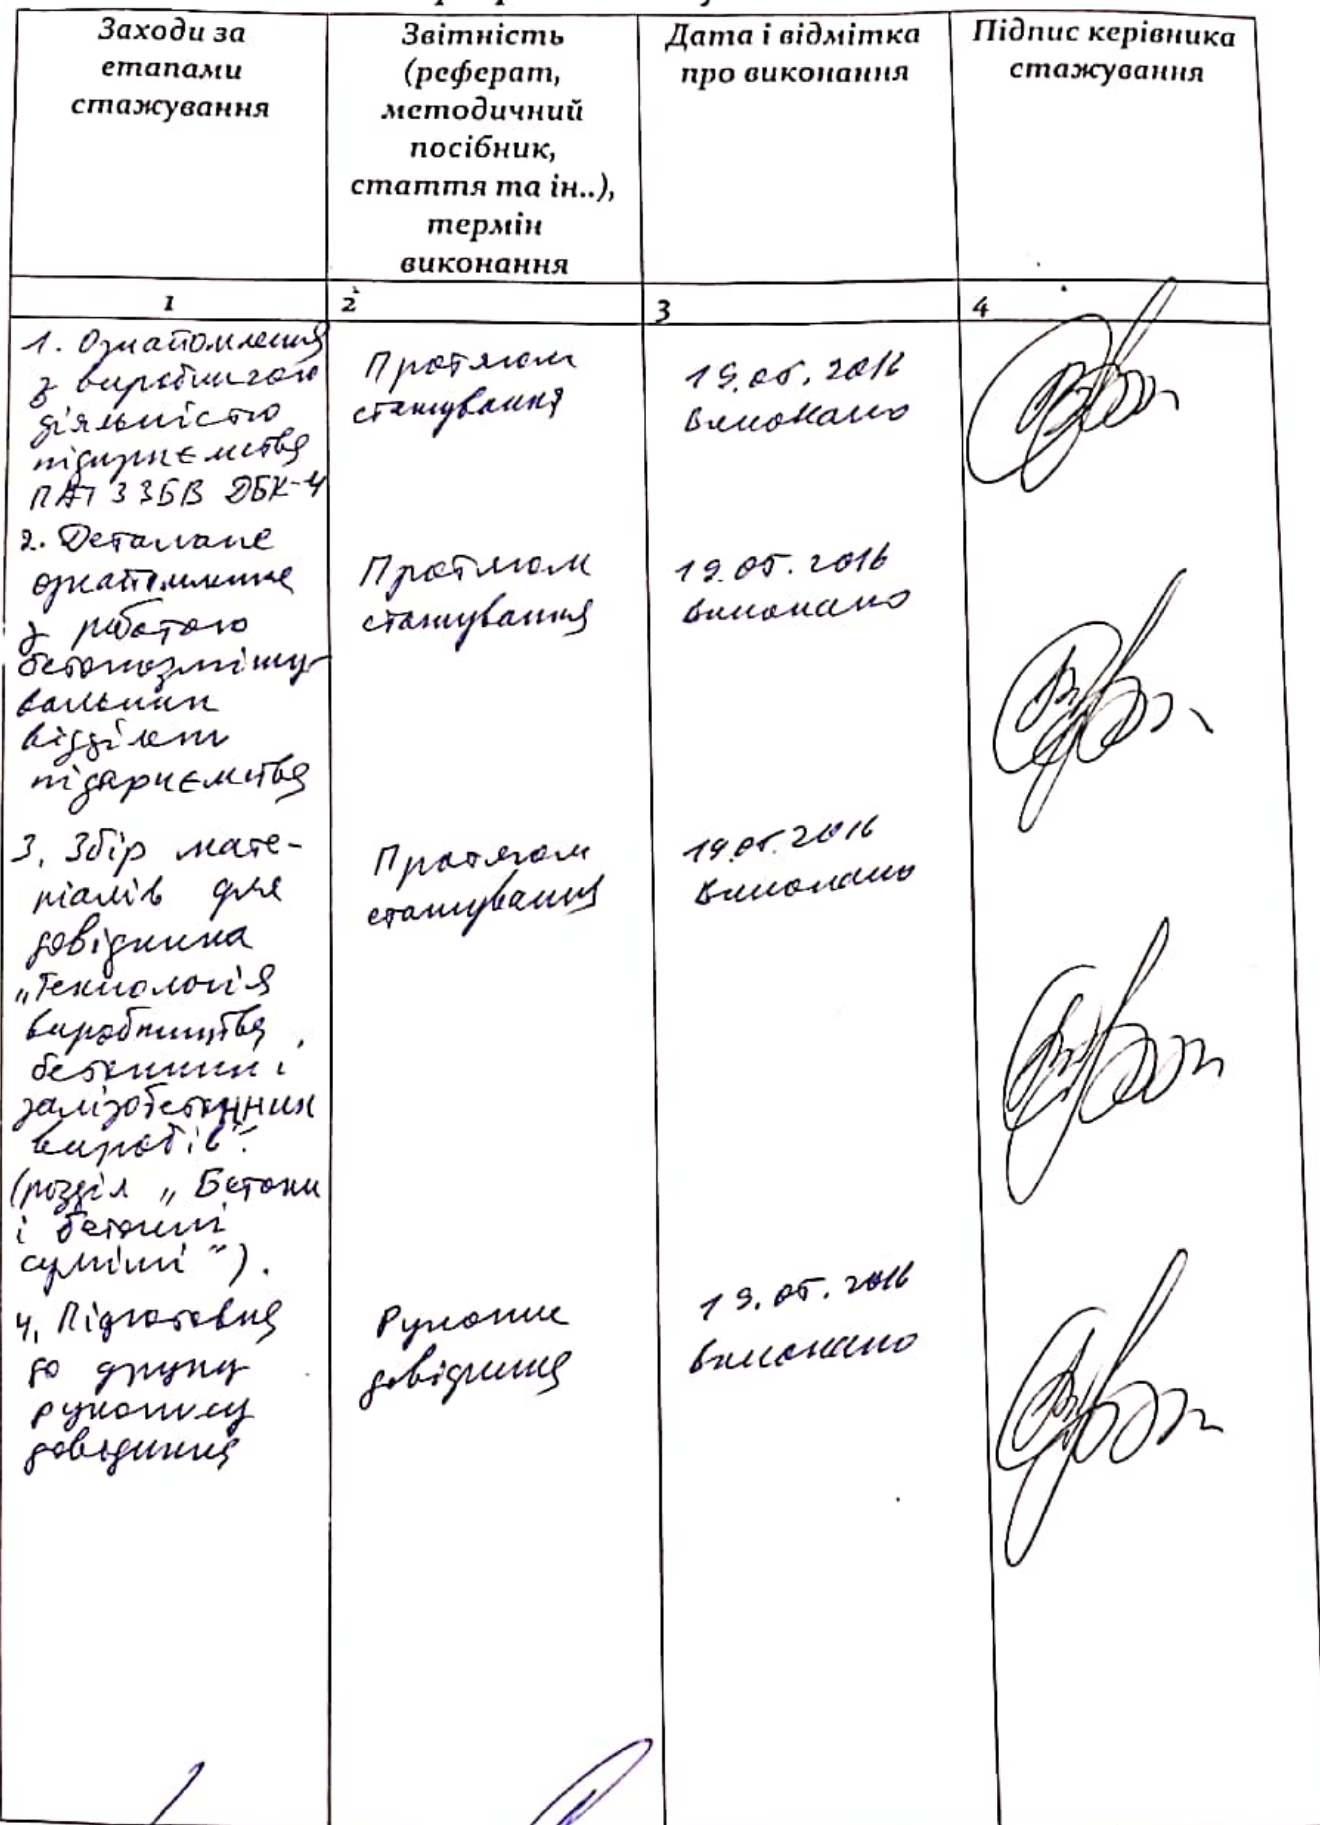 Заходи за
етапами
стажування
Звітність
(реферат,
методичний
посібник,
стаття та ін..),
термін
виконання
Дата і відмітка
про виконання
Підпис керівника
стажування
1
2
3
4
1. Ознайомлення
з виробничою
діяльністю
підприємства
ПАТ ЗЗБВ ДБК-4
Протягом
стажування
19.05.2016
виконано
2. Детальне
ознайомлення
з роботою
бетонозмішу-
вальних
відділень
підприємства
Протягом
стажування
19.05.2016
виконано
3. Збір мате-
ріалів для
довідника
„Технологія
виробництва
бетонних і
залізобетонних
виробів".
(розділ „Бетони
і бетонні
суміші").
Протягом
стажування
19.05.2016
виконано
4. Підготовка
до друку
рукопису
довідника
Рукопис
довідника
19.05.2016
виконано